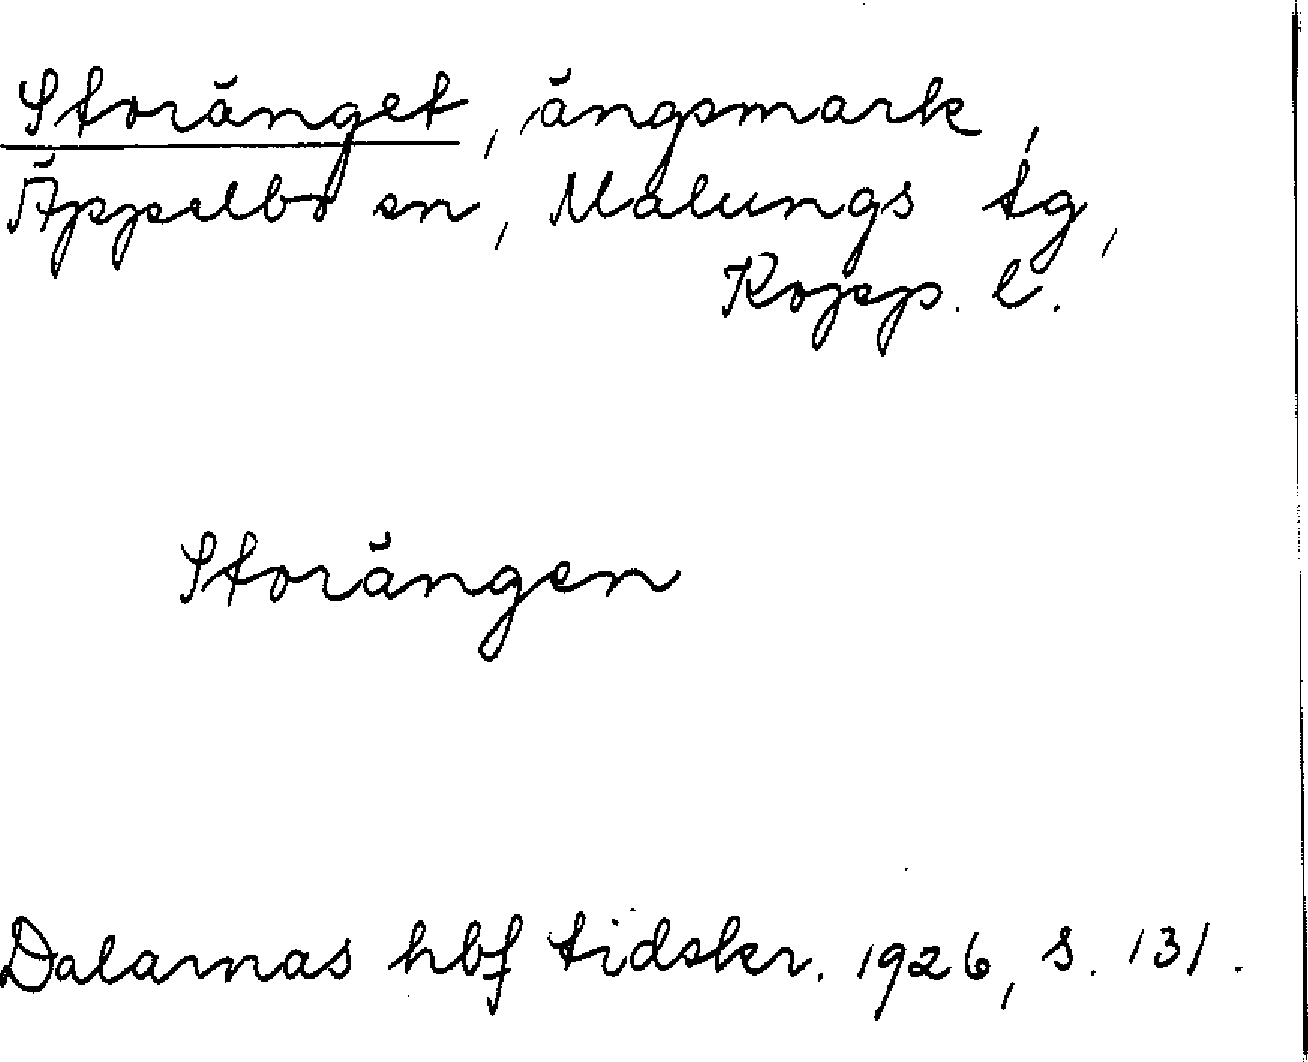 Storänget, ängsmark,
Äppelbo sn, Malungs tg,
Kopp. l.
Storängen
Dalarnas hbf tidskr. 1926, s. 131.